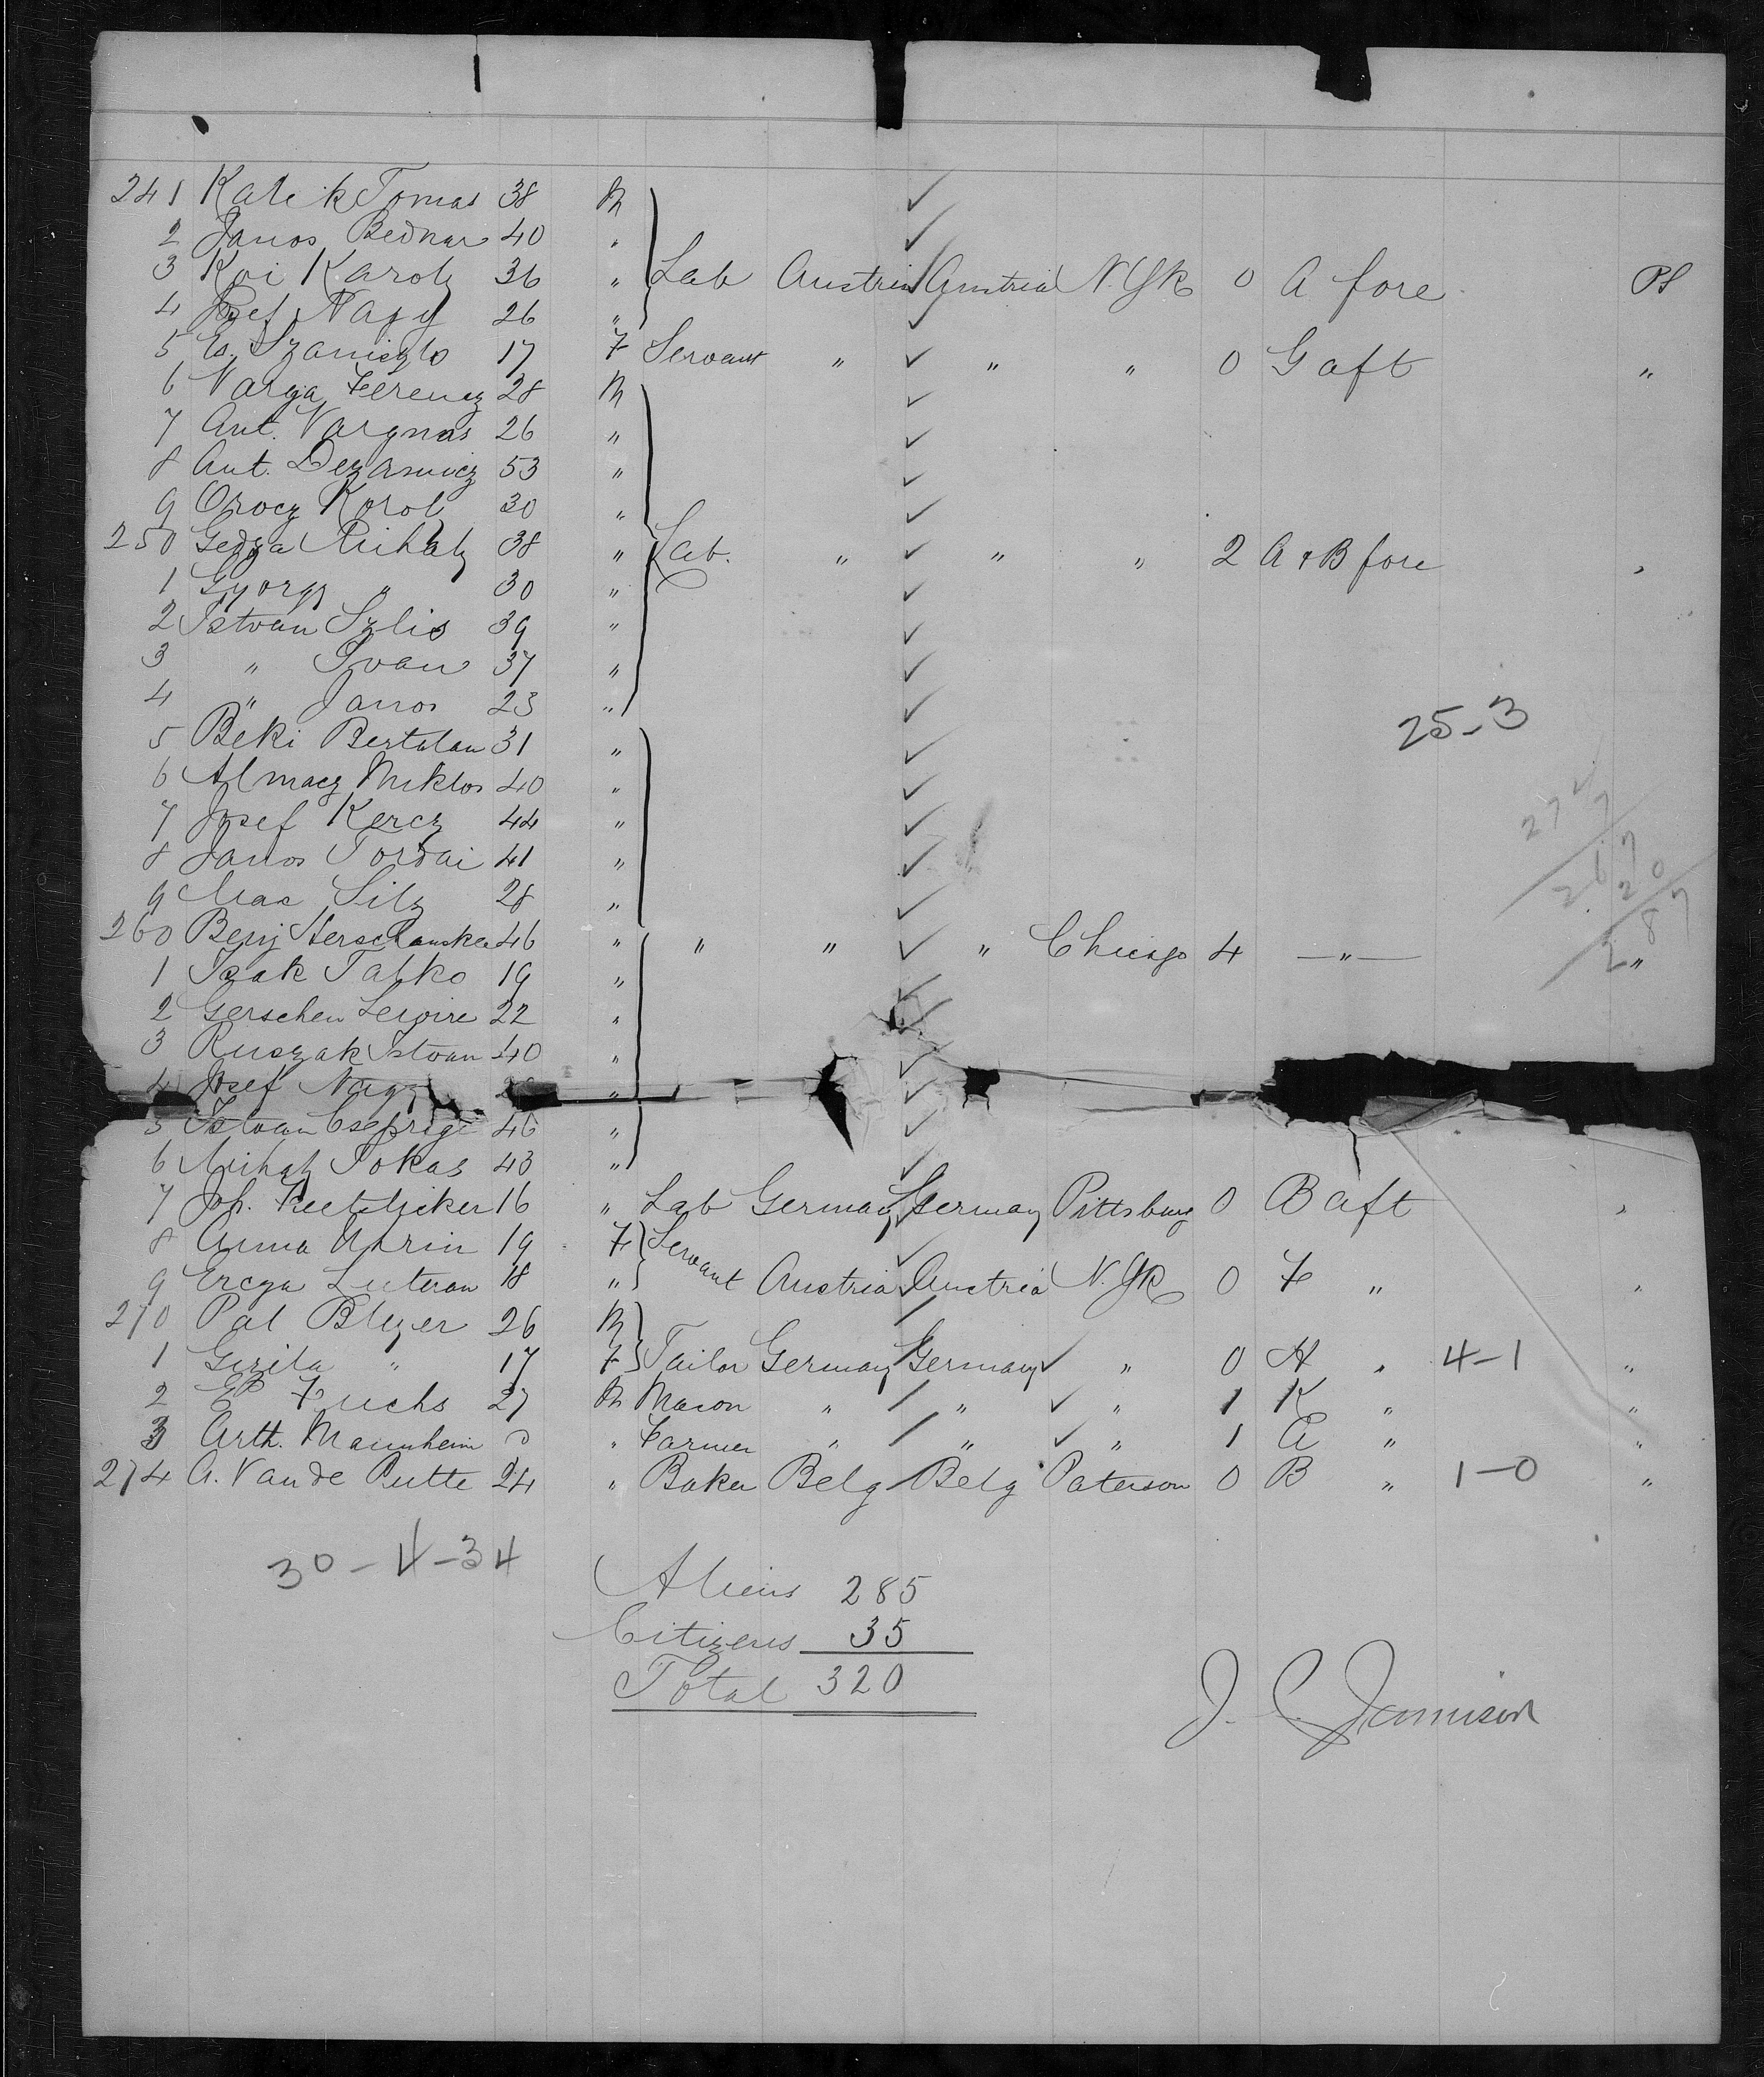 241 Kalik Tomas 38 M
2 Janos Bednar 40 "
3 Koi Karoly 36 " Lab Austria Austria N.Yk 0 A fore PS
4 Josef Nagy 26 "
5 Szaniszlo 17 F Servant " " " 0 G aft "
6 Varga Ferencz 28 M
7 Ant. Vargnas 26 "
8 Ant. 53 "
9 Orocz Karoly 30 "
250 Gedza Mihaly 38 " Lab. " " " 2 A + B fore "
1 Gyorgy " 30 "
2 Istvan Szlis 39 "
3 " Ivan 37 "
4 " Janos 23 "
25-3
5 Beki Bertalan 31 "
6 Almacz Miklos 40 "
7 Josef Kercz 44 "
8 Janos Tordai 41 "
9 28 "
260 Benj 46 " " " " Chicago 4 — " — "
1 Isak Talko 19 "
2 Gerschen 22 "
3 Ruszak Istvan 40 "
4 Josef Nagy "
5 Istvan 46 "
6 Mihaly Tokas 43 "
7 Joh. 16 " Lab Germany Germany Pittsburg 0 B aft "
8 Anna Uhrin 19 F Servant
9 Luteran 18 " Austria Austria N.Yk 0 F " "
270 Pal Blezer 26 M
1 Gizila " 17 F Tailor Germany Germany " 0 H " 4-1 "
2 Fuchs 27 M Mason " " " 1 K " "
3 Arth. Mannheim " Farmer " " " 1 A " "
274 A. Van de Putte 24 " Baker Belg Belg Paterson 0 B " 1-0 "
30-4-34
Aliens 285
Citizens 35
Total 320
J. C. Jamison